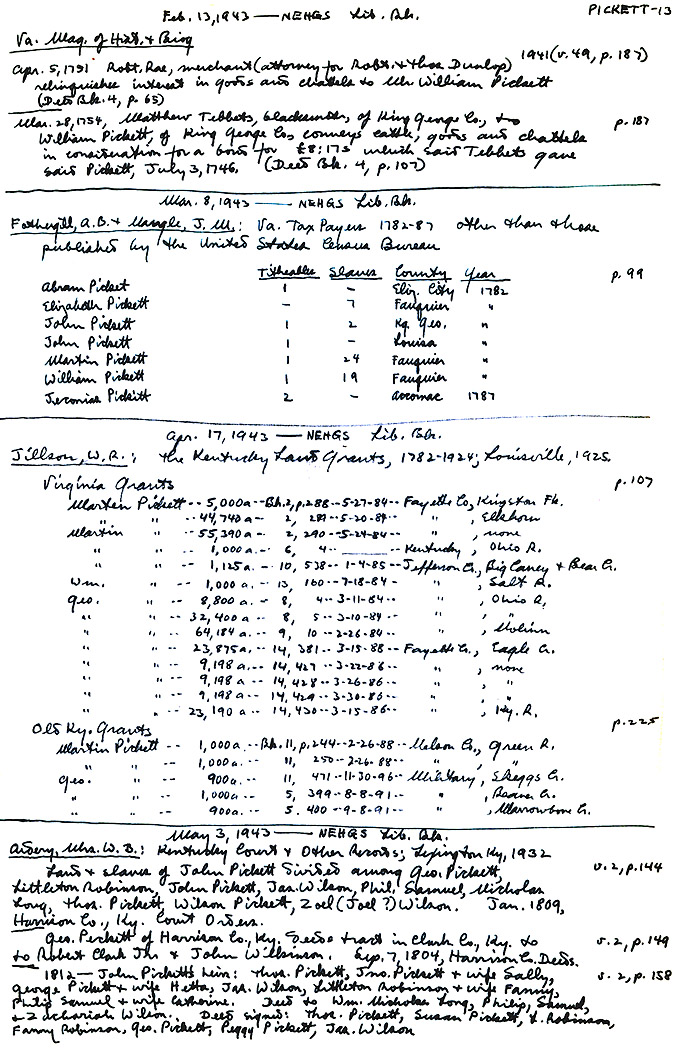 Feb. 13, 1943 — NEHGS Lib. Bk. PICKETT-13
Va. Mag. of Hist. & Biog
Apr. 5, 1751 Robt. Rae, merchant (attorney for Robt. & Thos Dunlop) 1941 (v. 49, p. 187)
relinquishes interest in goods and chattels to Mr William Pickett
(Deed Bk. 4, p. 65)
Mar. 28, 1754, Matthew Tebbets, blacksmith, of King George Co., to p. 187
William Pickett, of King George Co, conveys cattle, goods and chattels
in consideration for a bond for £8:17s which said Tebbets gave
said Pickett, July 3, 1746. (Deed Bk. 4, p. 107)
Mar. 8, 1943 — NEHGS Lib. Bk.
Fothergill, A.B. & Naugle, J. M.: Va. Tax Payers 1782-87 other than those
published by the United States Census Bureau
Titheables Slaves County Year p. 99
Abram Picket 1 - Eliz. City 1782
Elizabeth Pickett - 7 Fauquier "
John Pickett 1 2 Kg. Geo. "
John Pickett 1 - Louisa "
Martin Pickett 1 24 Fauquier "
William Pickett 1 19 Fauquier "
Pickitt 2 - Accomac 1787
Apr. 17, 1943 — NEHGS Lib. Bk.
Jillson, W.R.: The Kentucky Land Grants, 1782-1924; Louisville, 1925.
Virginia Grants p. 107
Marten Pickett -- 5,000a -- Bk. 2, p. 288 -- 5-27-84 -- Fayette Co, Kingston Fk.
" " -- 44,742a - 2, 289 -- 5-20-84 -- " , Elkhorn
Martin " -- 55,390a - 2, 290 -- 5-24-84 -- " , none
" " -- 1,000a. - 6, 4 -- ____ -- Kentucky, Ohio R.
" " -- 1,125a. - 10, 538 -- 1-4-85 -- Jefferson Co., Big Caney & Bear Cr.
Wm. " -- 1,000a - 13, 160 -- 7-18-84 - " , Salt R.
Geo. " -- 8,800a. - 8, 4 -- 3-11-84 -- " , Ohio R,
" " -- 32,400a - 8, 5 -- 3-10-84 -- " , "
" " -- 64,184a -- 9, 10 -- 2-26-84 -- " ,
" " -- 23,875a. - 14, 381 -- 3-15-88 -- Fayette Co., Eagle Cr.
" " -- 9,198a -- 14, 427 -- 3-22-86 -- " , none
" " -- 9,198a -- 14, 428 -- 3-26-86 -- " , "
" " -- 9,198a -- 14, 429 -- 3-30-86 -- " , "
" " -- 23,190a -- 14, 430 -- 3-15-86 -- " , Ky. R.
Old Ky. Grants p. 225
Martin Pickett -- 1,000a -- Bk. 11, p. 244 -- 2-26-88 -- Nelson Co., Green R.
" " -- 1,000a. -- 11, 250 -- 2-26-88 -- " , "
Geo. " -- 900a. -- 11, 471 -- 11-30-96 -- , Skeggs Cr.
" " -- 1,000a -- 5, 399 -- 8-8-91 -- " , Beaver Cr.
" " -- 900a. -- 5. 400 -- 9-8-91 -- " , Marrowbone Cr.
May 3, 1943 — NEHGS Lib. Bk.
Ardery, Mrs. W. B.: Kentucky Court & Other Records; Lexington Ky, 1932
Land & slaves of John Pickett divided among Geo. Pickett, v. 2, p. 144
Littleton Robinson, John Pickett, Jas. Wilson, Phil. Samuel, Nicholas
Long, Thos. Pickett, Wilson Pickett, Zoel (Joel?) Wilson. Jan. 1809,
Harrison Co., Ky. Court Orders.
Geo. Pickett of Harrison Co., Ky. deeds tract in Clark Co., Ky. to v. 2, p. 149
to Robert Clark Jnr & John Wilkinson. Sep. 7, 1804, Harrison Co. Deeds.
1812 — John Picketts heirs: Thos. Pickett, Jno. Pickett & wife Sally, v. 2, p. 158
George Pickett & wife Hetta, Jas. Wilson, Littleton Robinson & wife Fanny,
Philip Samuel & wife Catherine. Deed to Wm. Nicholas Long, Philip, Samuel,
& Zachariah Wilson. Deed signed: Thos. Pickett, Susan Pickett, L. Robinson,
Fanny Robinson, Geo. Pickett, Peggy Pickett, Jas. Wilson